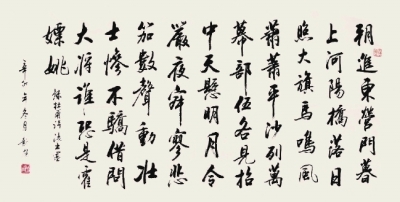 朝進東營門暮
上河陽橋落日
照大旗馬鳴風
蕭蕭平沙列萬
幕部伍各見招
中天懸明月令
嚴夜寂寥悲
笳數聲動壯
士慘不驕借問
大將誰恐是霍
嫖姚
錄杜甫詩後出塞
冬月